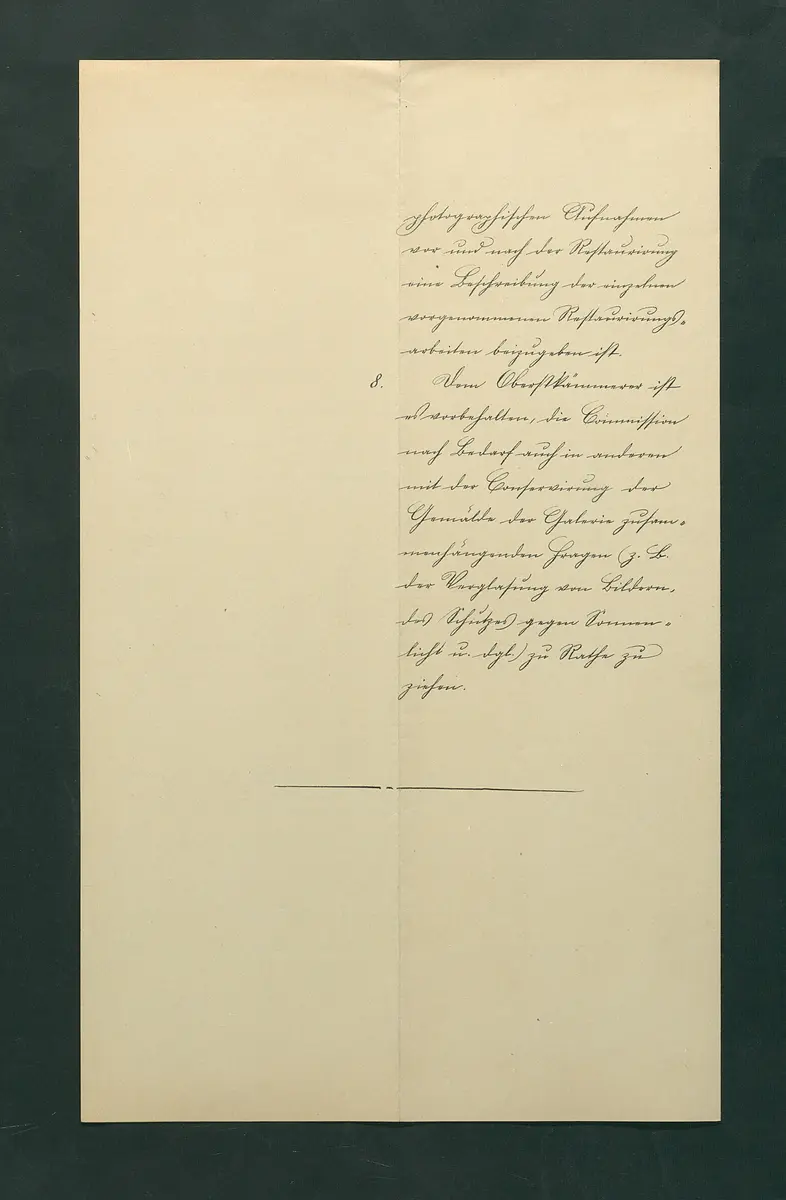 photographischen Aufnahmen
vor und nach der Restaurirung
eine Beschreibung der einzelnen
vorgenommenen Restaurirungs-
arbeiten beizugeben ist.
8. Dem Oberstkämmerer ist
es vorbehalten, die Com̅ission
nach Bedarf auch in anderen
mit der Conservirung der
Gemälde der Galerie zusam-
menhängenden Fragen (z. B.
der Verglasung von Bildern,
des Schutzes gegen Sonnen-
licht u. dgl.) zu Rathe zu
ziehen.